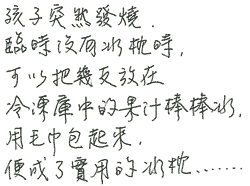 孩子突然發燒.
臨時沒有冰枕時,
可以把幾支放在
冷凍庫中的果汁棒棒冰,
用毛巾包起來,
便成了實用的冰枕.......